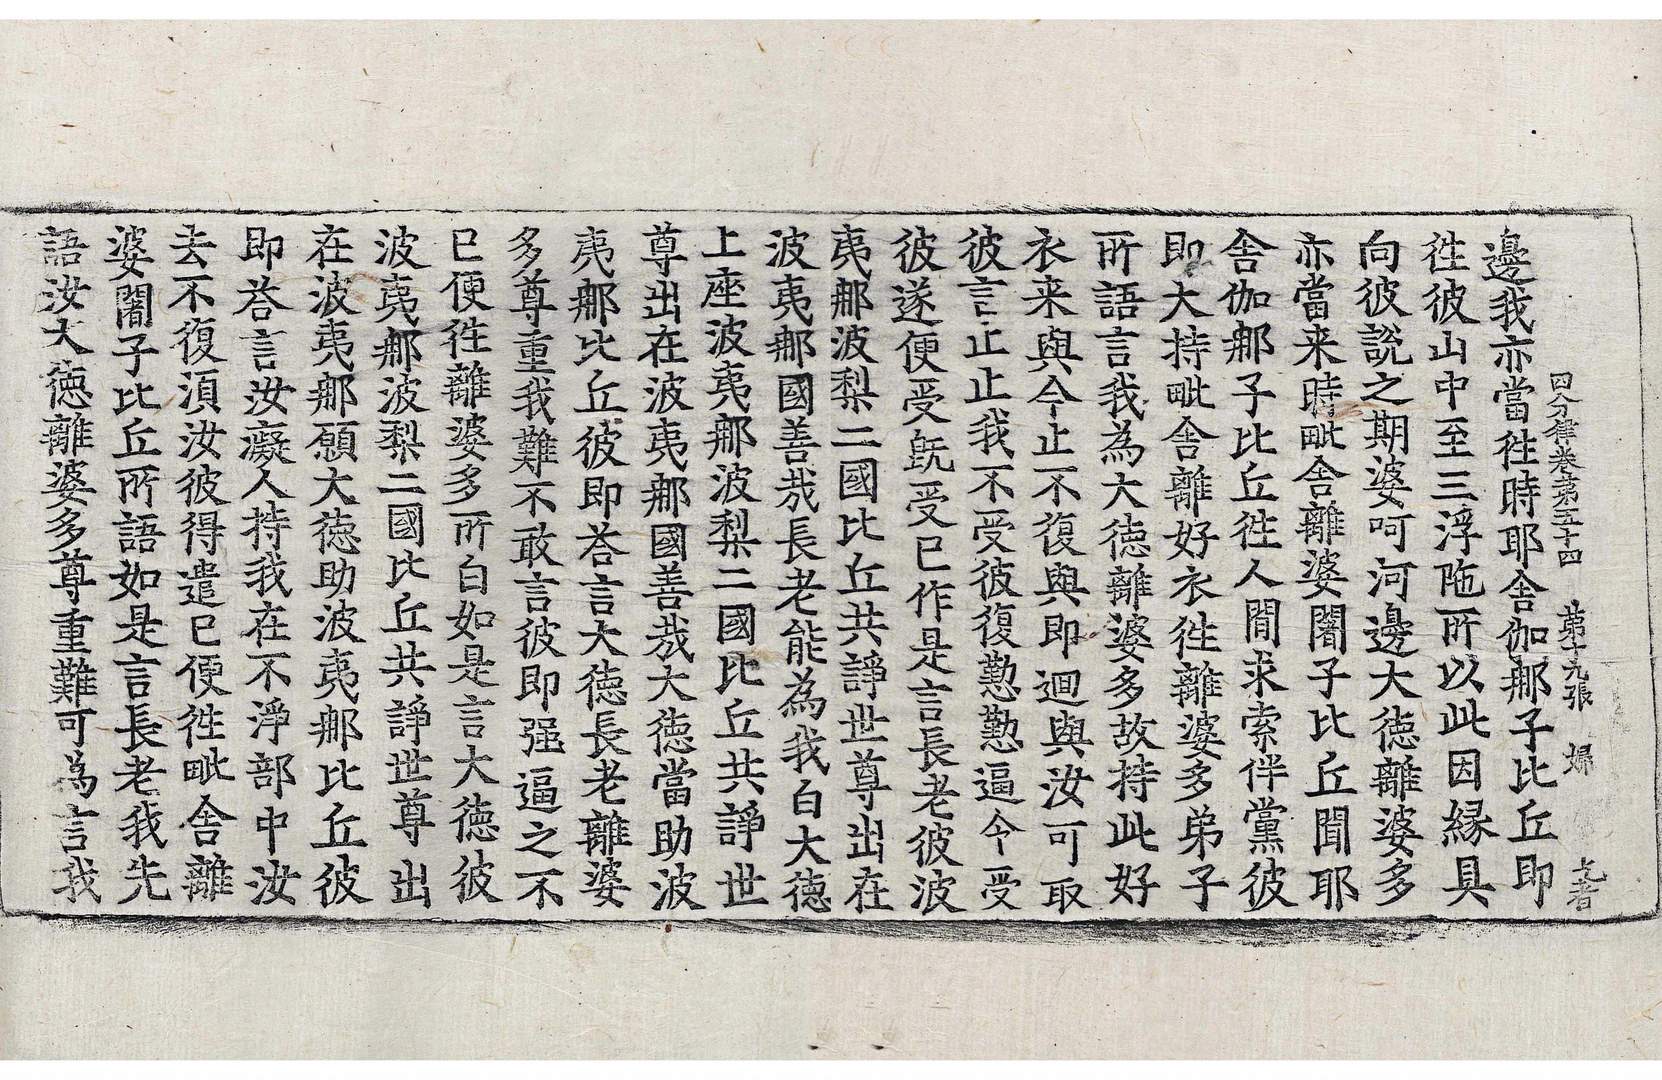 四分律卷第五十四 第十九張 婦
邊我亦當徃時耶舍伽那子比丘即
徃彼山中至三浮陁所以此因縁具
向彼說之期婆呵河邊大徳離婆多
亦當来時毗舍離婆闍子比丘聞耶
舍伽那子比丘徃人間求索伴黨彼
即大持毗舍離好衣徃離婆多弟子
所語言我為大徳離婆多故持此好
衣来與今止不復與即迴與汝可取
彼言止止我不受彼復懃懃逼令受
彼遂便受旣受已作是言長老彼波
夷那波梨二國比丘共諍世尊出在
波夷那國善哉長老能為我白大徳
上座波夷那波梨二國比丘共諍世
尊出在波夷那國善哉大徳當助波
夷那比丘彼即荅言大徳長老離婆
多尊重我難不敢言彼即强逼之不
已便徃離婆多所白如是言大徳彼
波夷那波梨二國比丘共諍世尊出
在波夷那願大徳助波夷那比丘彼
即荅言汝癡人持我在不淨部中汝
去不復湏汝彼得遣已便徃毗舍離
婆闍子比丘所語如是言長老我先
語汝大徳離婆多尊重難可為言我